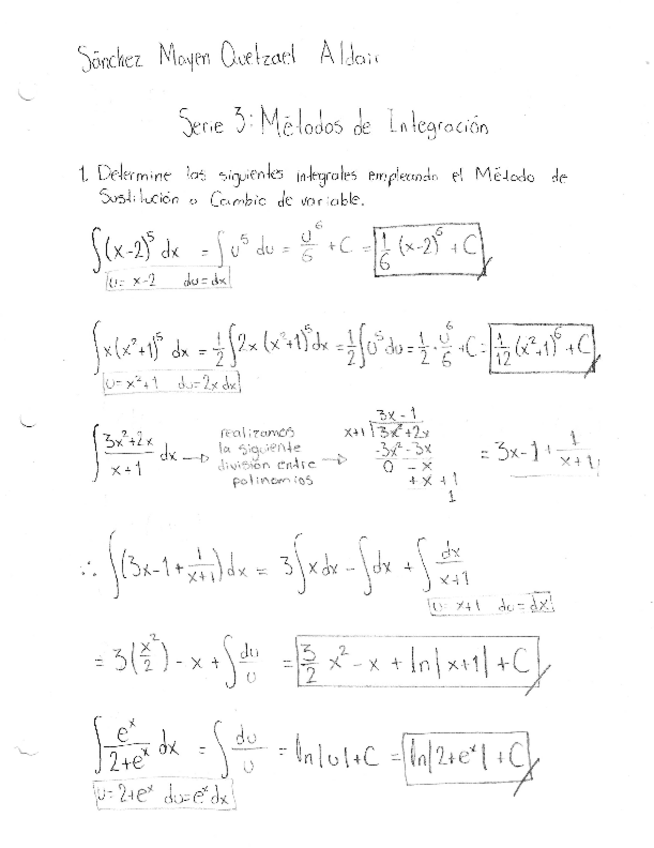 Sánchez Mayen Quetzael Aldair
Serie 3: Métodos de Integración
1. Determine las siguientes integrales empleando el Método de
Sustitución o Cambio de variable.
∫(x-2)⁵ dx = ∫u⁵ du = u⁶/6 + C = 1/6 (x-2)⁶ + C
u= x-2 du= dx
∫x(x²+1)⁵ dx = 1/2 ∫2x (x²+1)⁵ dx = 1/2 ∫u⁵ du = 1/2 · u⁶/6 + C = 1/12 (x²+1)⁶ + C
u= x²+1 du= 2x dx
∫ (3x²+2x)/(x+1) dx → realizamos la siguiente división entre polinomios →
3x - 1
x+1 3x²+2x
-3x²-3x
0 -x
+x +1
1
= 3x-1+ 1/(x+1)
∴ ∫(3x-1+ 1/(x+1)) dx = 3∫x dx - ∫dx + ∫ dx/(x+1)
u= x+1 du= dx
= 3(x²/2) - x + ∫ du/u = 3/2 x² - x + ln|x+1| + C
∫ eˣ/(2+eˣ) dx = ∫ du/u = ln|u|+C = ln|2+eˣ| + C
u= 2+eˣ du= eˣ dx